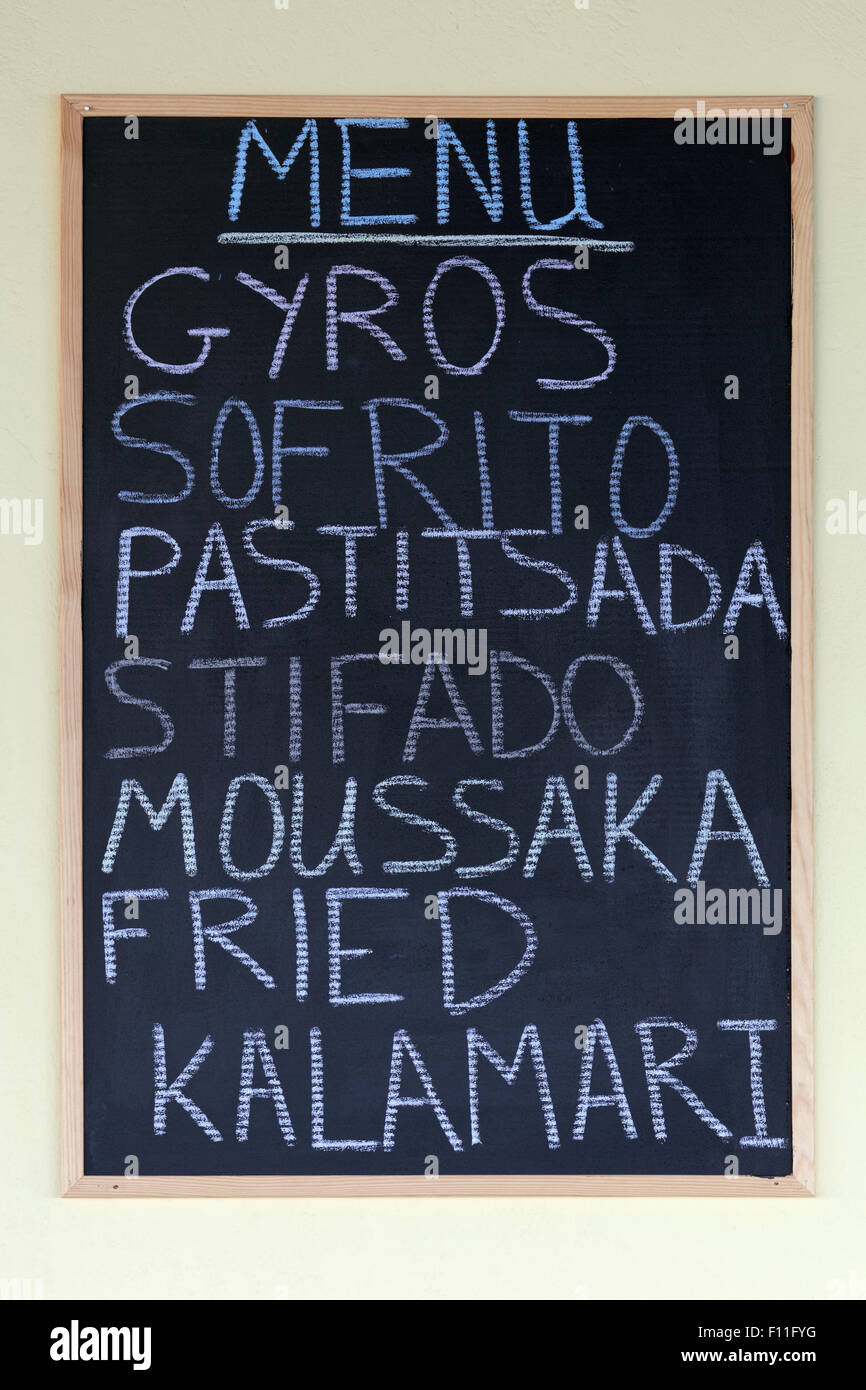 MENU
GYROS
SOFRITO
PASTITSADA
STIFADO
MOUSSAKA
FRIED
KALAMARI
alamy
Image ID: F11FYG
www.alamy.com